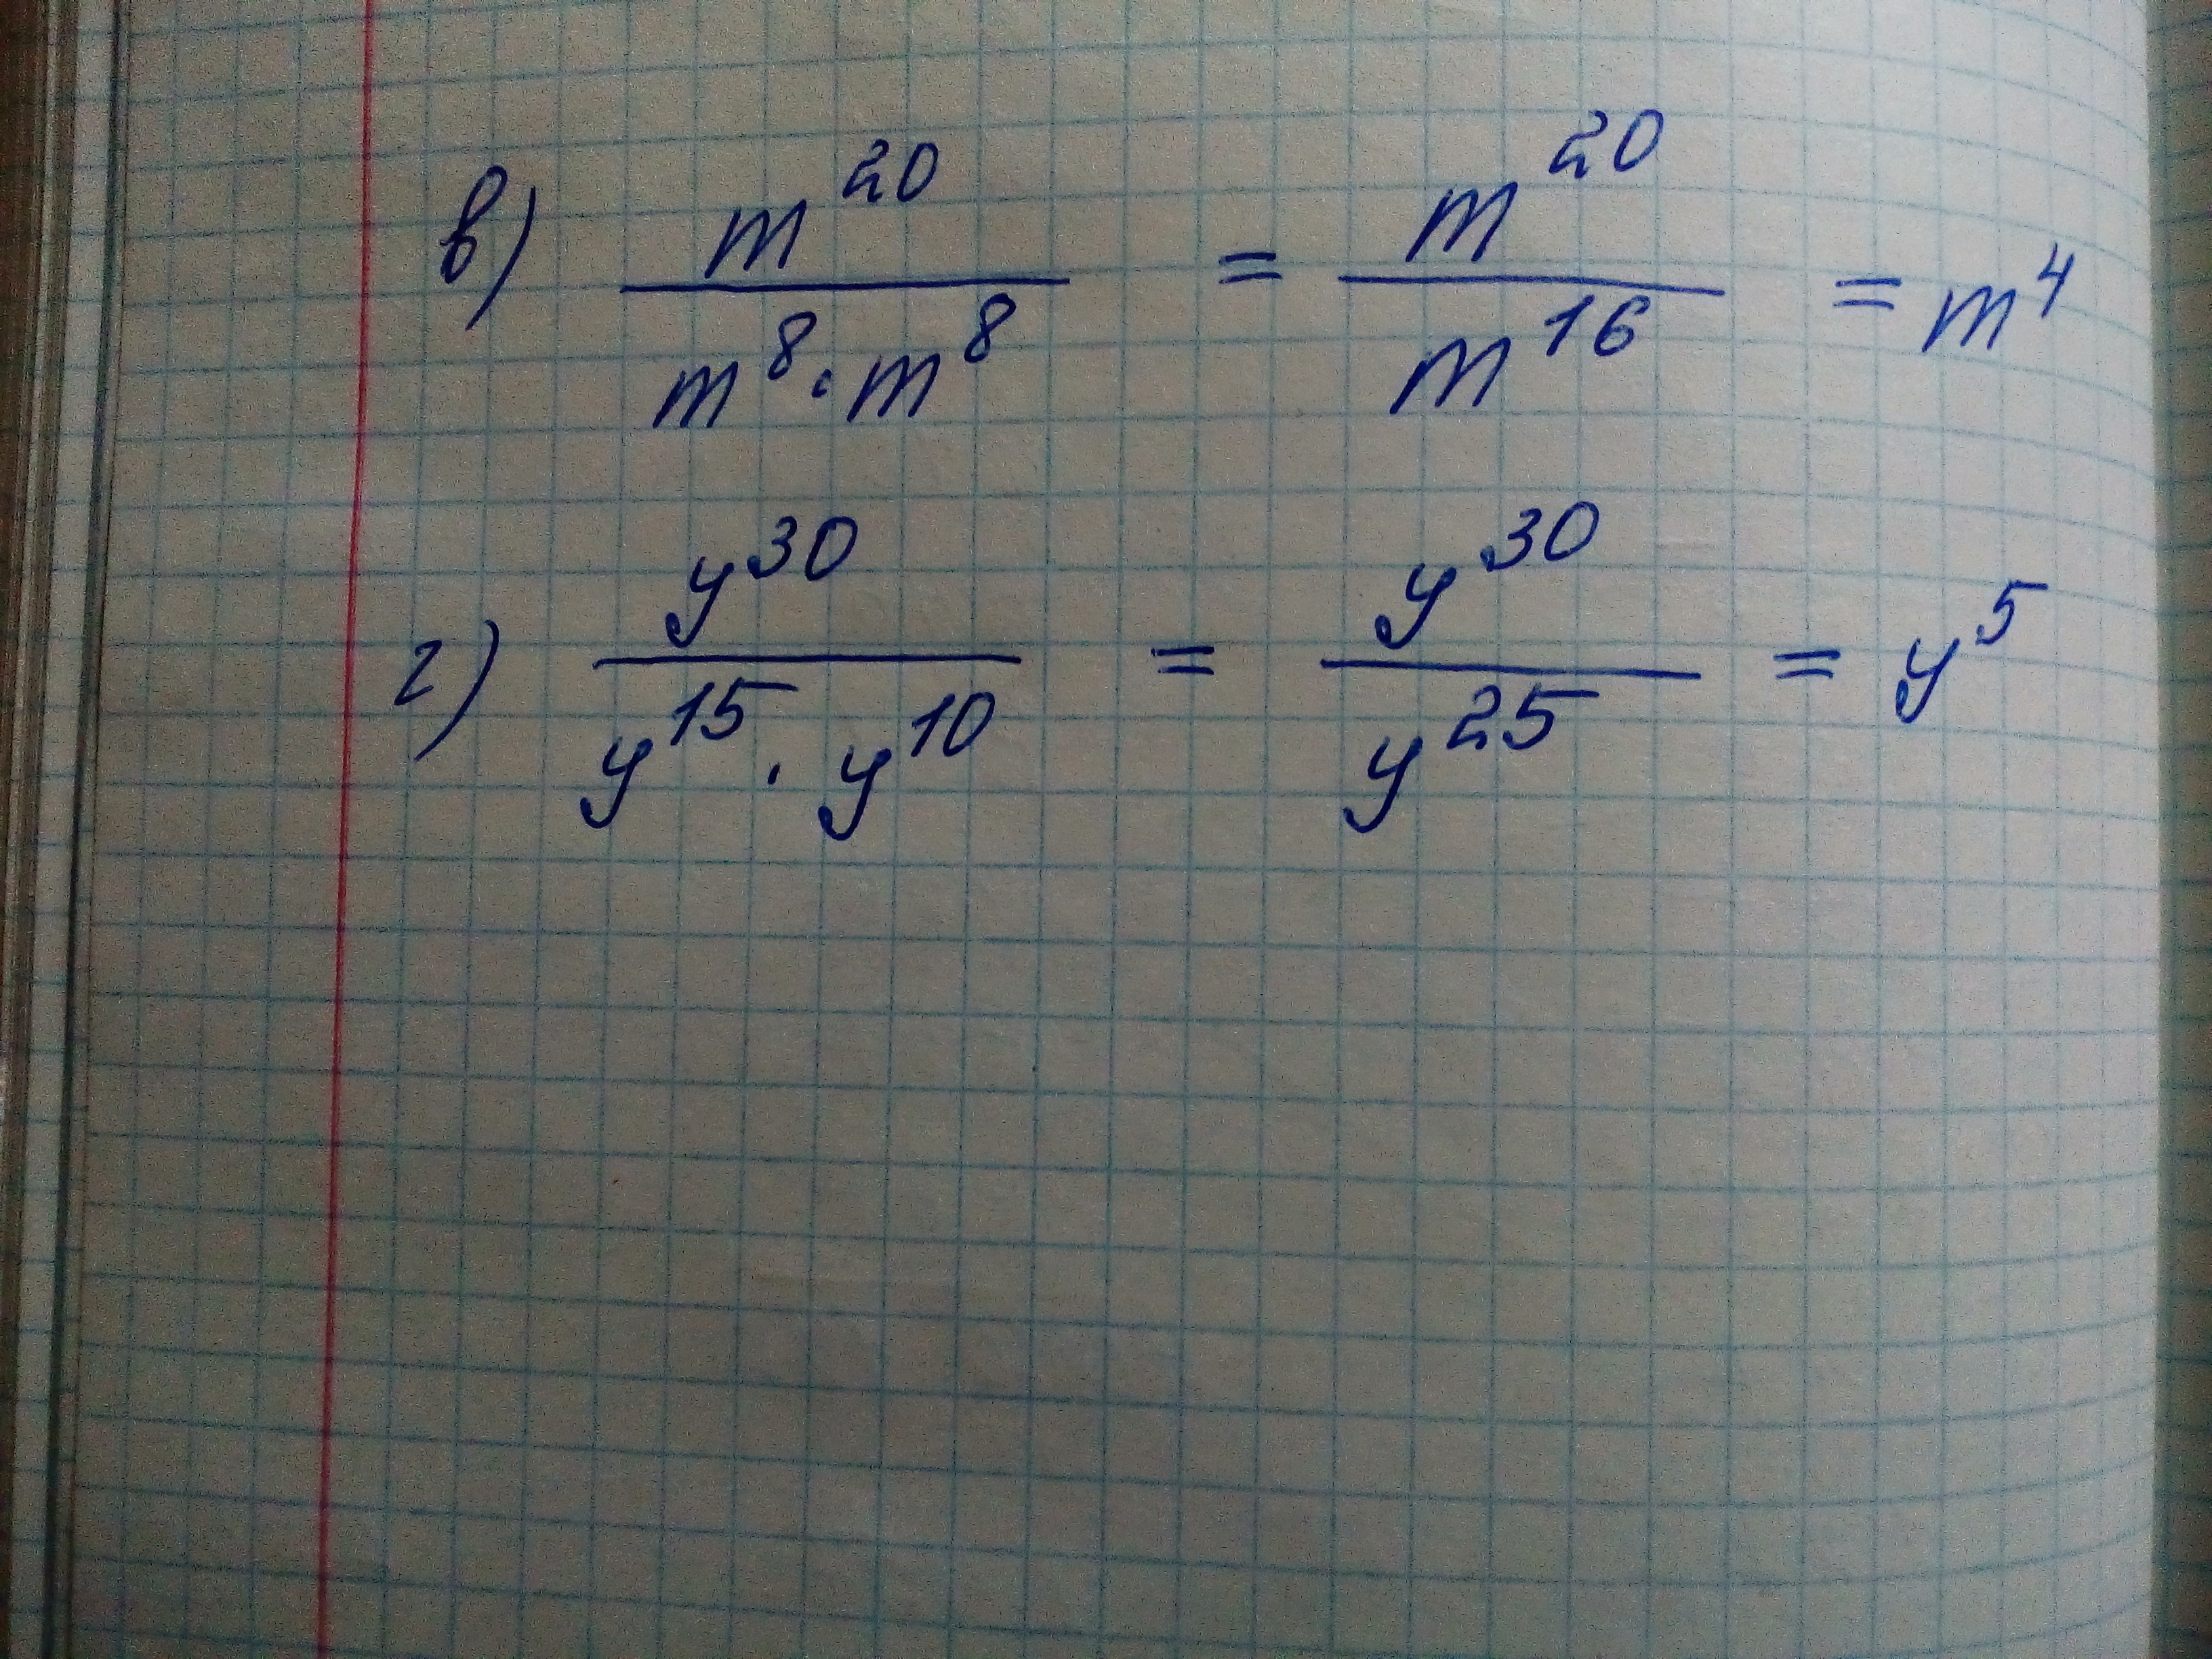 в) m²⁰ / m⁸ · m⁸ = m²⁰ / m¹⁶ = m⁴
г) y³⁰ / y¹⁵ · y¹⁰ = y³⁰ / y²⁵ = y⁵